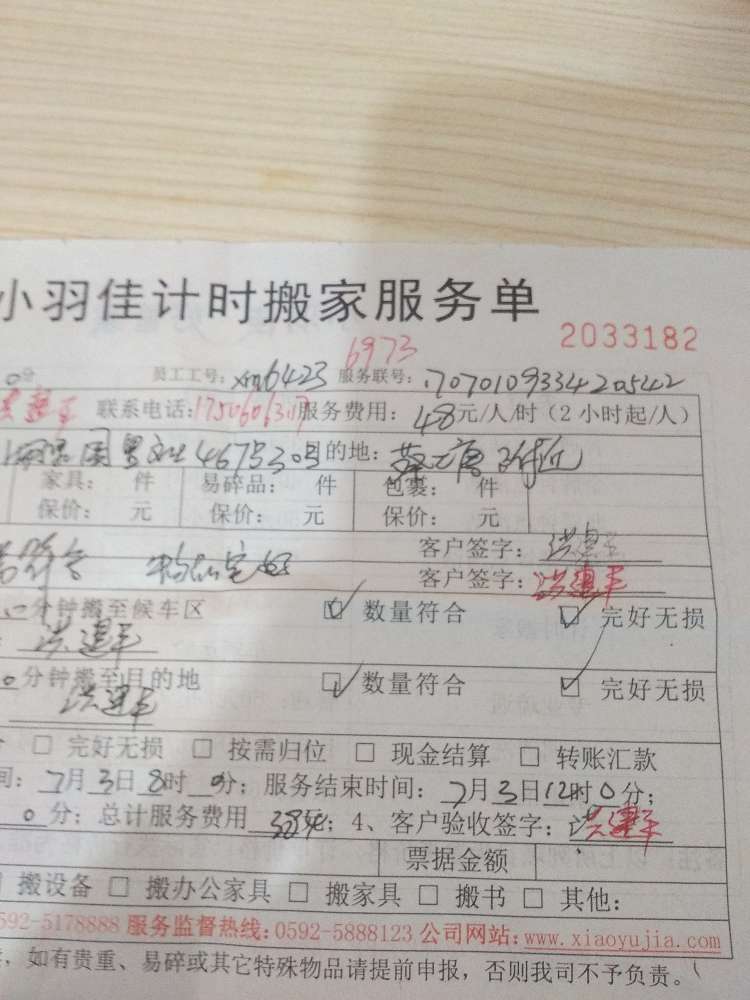 小羽佳计时搬家服务单
2033182
6973
0分 员工工号: xm6423 服务联号: 1707010933420542
联系电话: 服务费用: 48元/人/时(2小时起/人)
目的地: 附近
家具: 件 易碎品: 件 包裹: 件
保价: 元 保价: 元 保价: 元
符合 物品完好 客户签字: 洪建平
客户签字: 洪建平
0分钟搬至候车区 数量符合 完好无损
洪建平
0分钟搬至目的地 数量符合 完好无损
洪建平
完好无损 按需归位 现金结算 转账汇款
间: 7月3日8时0分; 服务结束时间: 7月3日12时0分;
0分; 总计服务费用 384元; 4、客户验收签字: 洪建平
票据金额
搬设备 搬办公家具 搬家具 搬书 其他:
0592-5178888 服务监督热线: 0592-5888123 公司网站: www.xiaoyujia.com
如有贵重、易碎或其它特殊物品请提前申报, 否则我司不予负责。